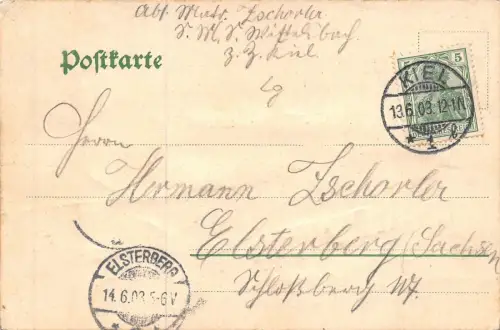 Abs. Matr. Zschorler
S. M. S. Wittelsbach
z. Z. Kiel.
Postkarte
5
KIEL
13.6.03.12-1N
* 1 *
Herrn
Hermann Zschorler
Elsterberg (Sachsen
Schloßberg
ELSTERBERG
14.6.03 5-6V